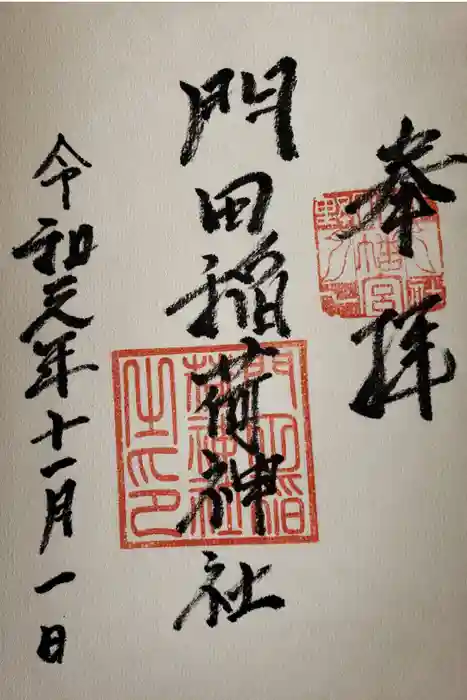 奉拝
門田稲荷神社
令和元年十一月一日
門田稲
荷神社
之印